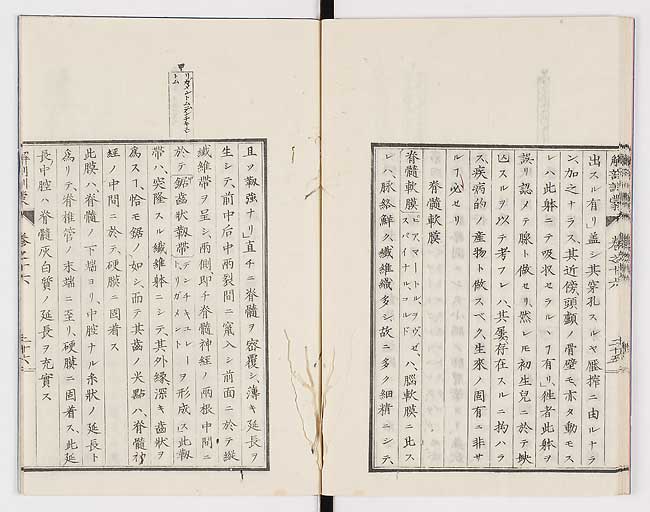 出スル有リ蓋シ其穿孔スルヤ壓搾ニ由ルナラ
ン、加之ナラス、其近傍、頭顱ノ骨壁モ亦タ動モス
レハ此躰ニテ吸收セラルヽ有リ、徃者此躰ヲ
誤リ認メテ腺ト做セリ然レモ初生兒ニ於テ
凶スルヲ以テ考フレハ、其屡存在スルニ拘ハラ
ス、疾病的ノ產物ト做スベク、生來ノ固有ニ非サ
ルヿ必セリ
脊髓軟膜
脊髓軟膜ピアマートルヲヴゼ、スパイナルコルドハ、腦軟膜ニ比ス
レハ、脉絡鮮ク、纖維織多シ、故ニ多ク細精ニシテ、
解剖訓蒙 卷之十六 二十五
且ツ靱強ナリ直チニ脊髓ヲ密覆シ、薄キ延長ヲ
生シテ、前中后中兩裂間ニ竄入シ前面ニ於テ縱
纖維帶ヲ呈シ、兩側即チ脊髓神經ノ兩根中間ニ
於テ鋸齒狀靱帶デンチキュレートリガメントヲ形成ス此靱
帶ハ、突隆スル纖維躰ニシテ、其外緣、深キ齒狀ヲ
爲スヿ恰モ鋸ノ如シ、而テ其齒ノ尖點ハ、脊髓神
經ノ中間ニ於テ、硬膜ニ固着ス
此膜ハ、脊髓ノ下端ヨリ、中腔ナル糸狀ノ延長ト
爲リテ、脊椎管ノ末端ニ至リ、硬膜ニ固着ス、此延
長中腔ハ脊髓灰白質ノ延長ヲ充實ス
解剖訓蒙 卷之十六